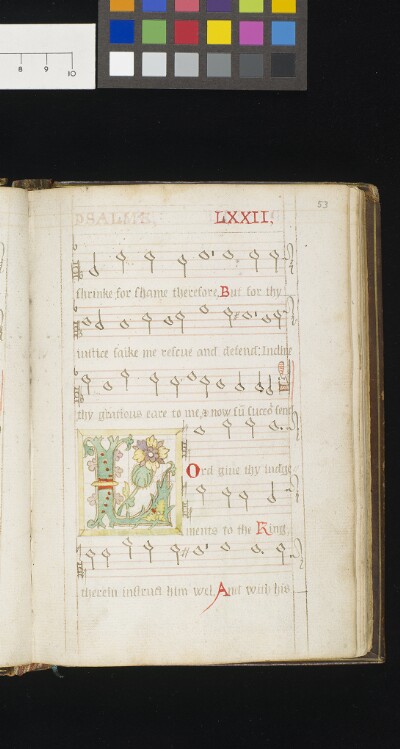 8 9 10
53
PSALMES. LXXII.
shrinke for shame therefore, But for thy
iustice sake me rescue and defend: Incline
thy gracious eare to me, & now sū sucoͬ send
LOrd giue thy iudge
ments to the King
therein instruct him wel, And with his